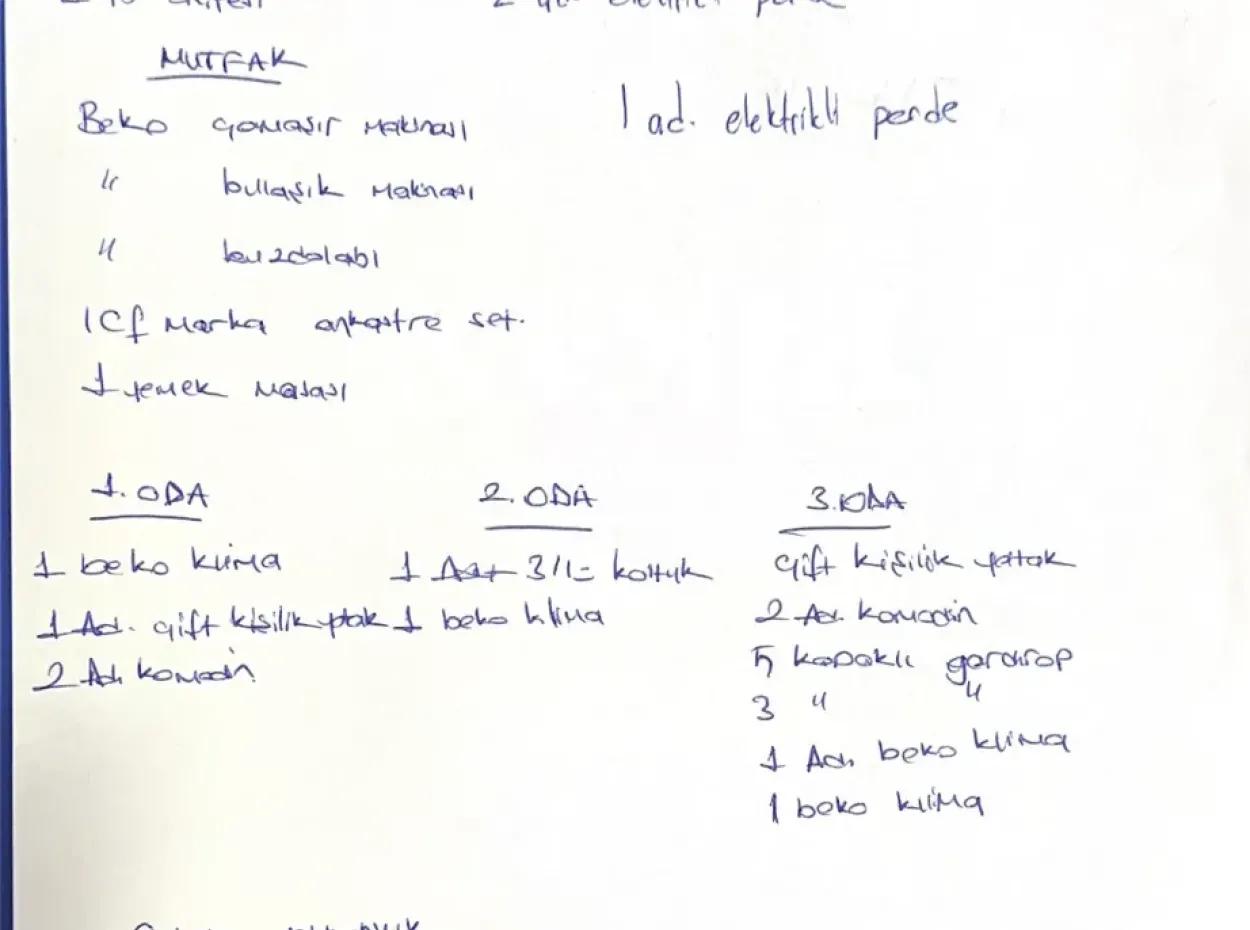 MUTFAK
Beko çamaşır makinası
1 ad. elektrikli perde
" bulaşık makinası
" buzdolabı
ICf marka ankastre set.
1 yemek masası
1. ODA
1 beko klima
1 Ad. çift kişilik ytak
2 Ad. komodin
2. ODA
1 Adt 3/1= koltuk
1 beko klima
3. ODA
çift kişilik yattak
2 Ad. komodin
5 kapaklı gardırop
3 " "
1 Ad. beko klima
1 beko klima